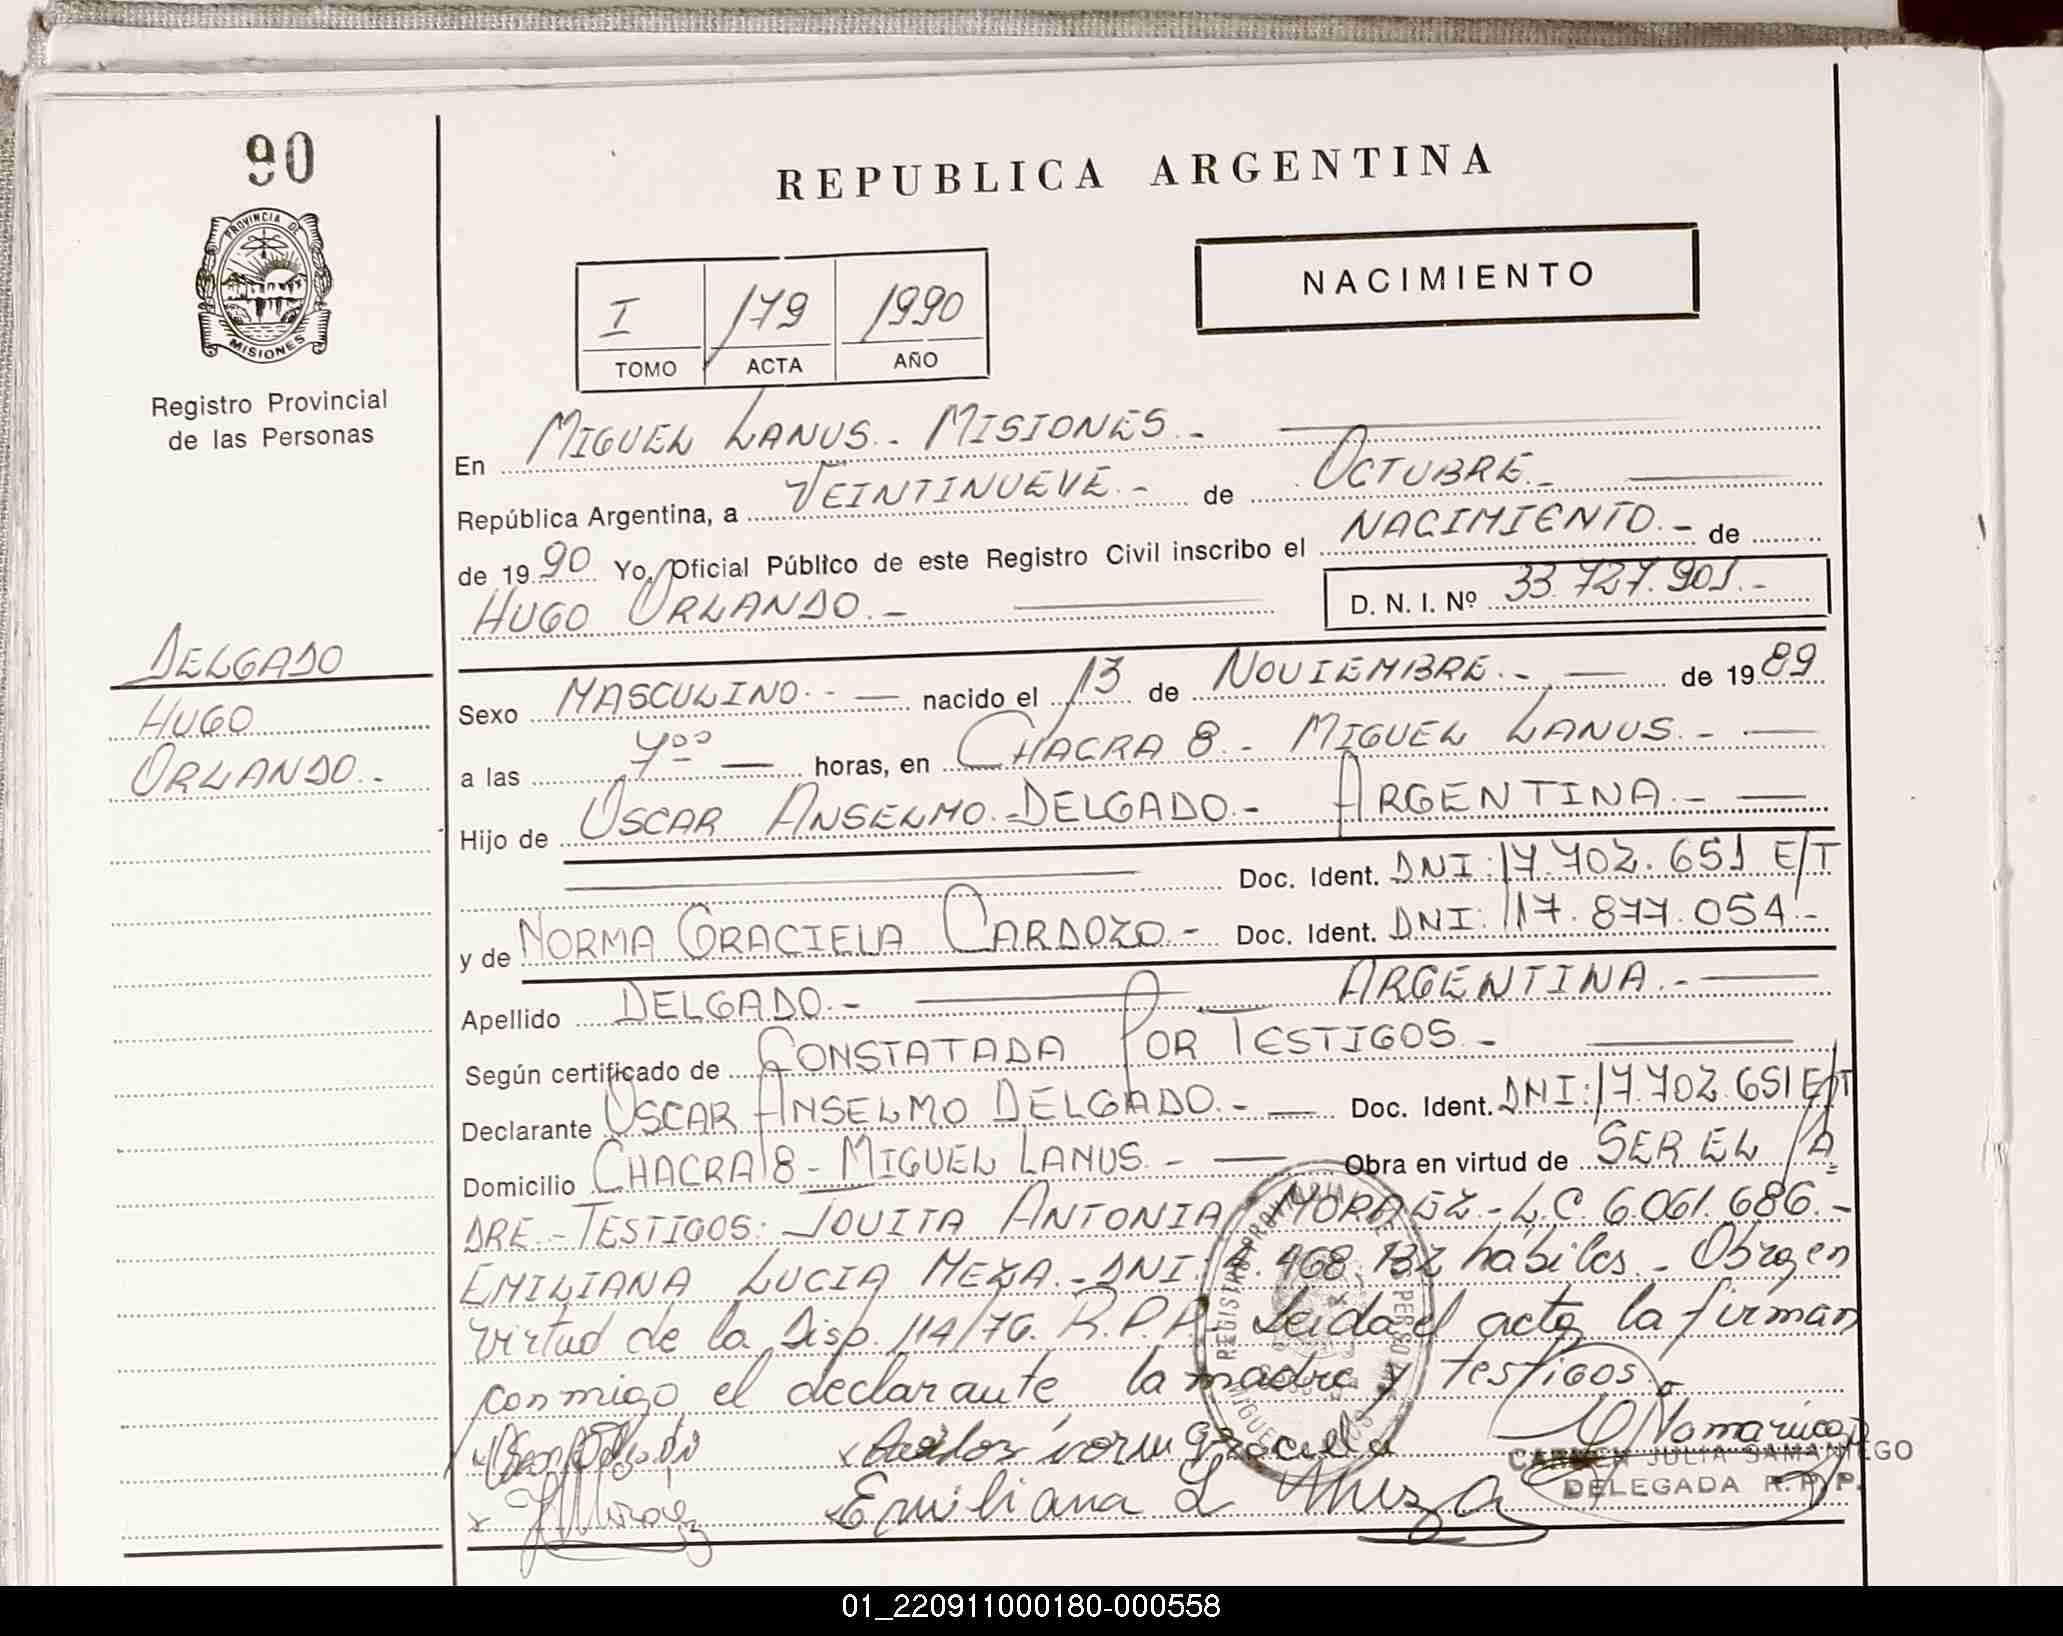 90
PROVINCIA DE
MISIONES
Registro Provincial
de las Personas
DELGADO
HUGO
ORLANDO.-
REPUBLICA ARGENTINA
NACIMIENTO
I 179 1990
TOMO ACTA AÑO
En MIGUEL LANUS.- MISIONES.-
República Argentina, a VEINTINUEVE.- de OCTUBRE.-
de 1990 Yo, Oficial Público de este Registro Civil inscribo el NACIMIENTO.- de
HUGO ORLANDO.- D. N. I. Nº 33.727.901.-
Sexo MASCULINO.- nacido el 13 de NOVIEMBRE.- de 1989
a las 7ºº horas, en CHACRA 8.- MIGUEL LANUS.-
Hijo de OSCAR ANSELMO DELGADO.- ARGENTINA.-
Doc. Ident. DNI: 17.702.651 E/T
y de NORMA GRACIELA CARDOZO.- Doc. Ident. DNI: 17.877.054.-
Apellido DELGADO.- ARGENTINA.-
Según certificado de CONSTATADA POR TESTIGOS.-
Declarante OSCAR ANSELMO DELGADO.- Doc. Ident. DNI: 17.702.651 E/T
Domicilio CHACRA 8 - MIGUEL LANUS.- Obra en virtud de SER EL PA=
DRE.- TESTIGOS: JOVITA ANTONIA MORAEZ.- L.C. 6.061.686.-
EMILIANA LUCIA MEZA.- DNI: 4.468.132 hábiles.- Obra en
virtud de la Disp. 114/76. R.P.P. Leida el acta la firman
conmigo el declarante, la madre y testigos.-
Graciela
Emiliana L Meza
CARMEN JULIA SAMANIEGO
DELEGADA R.P.P.
01_220911000180-000558